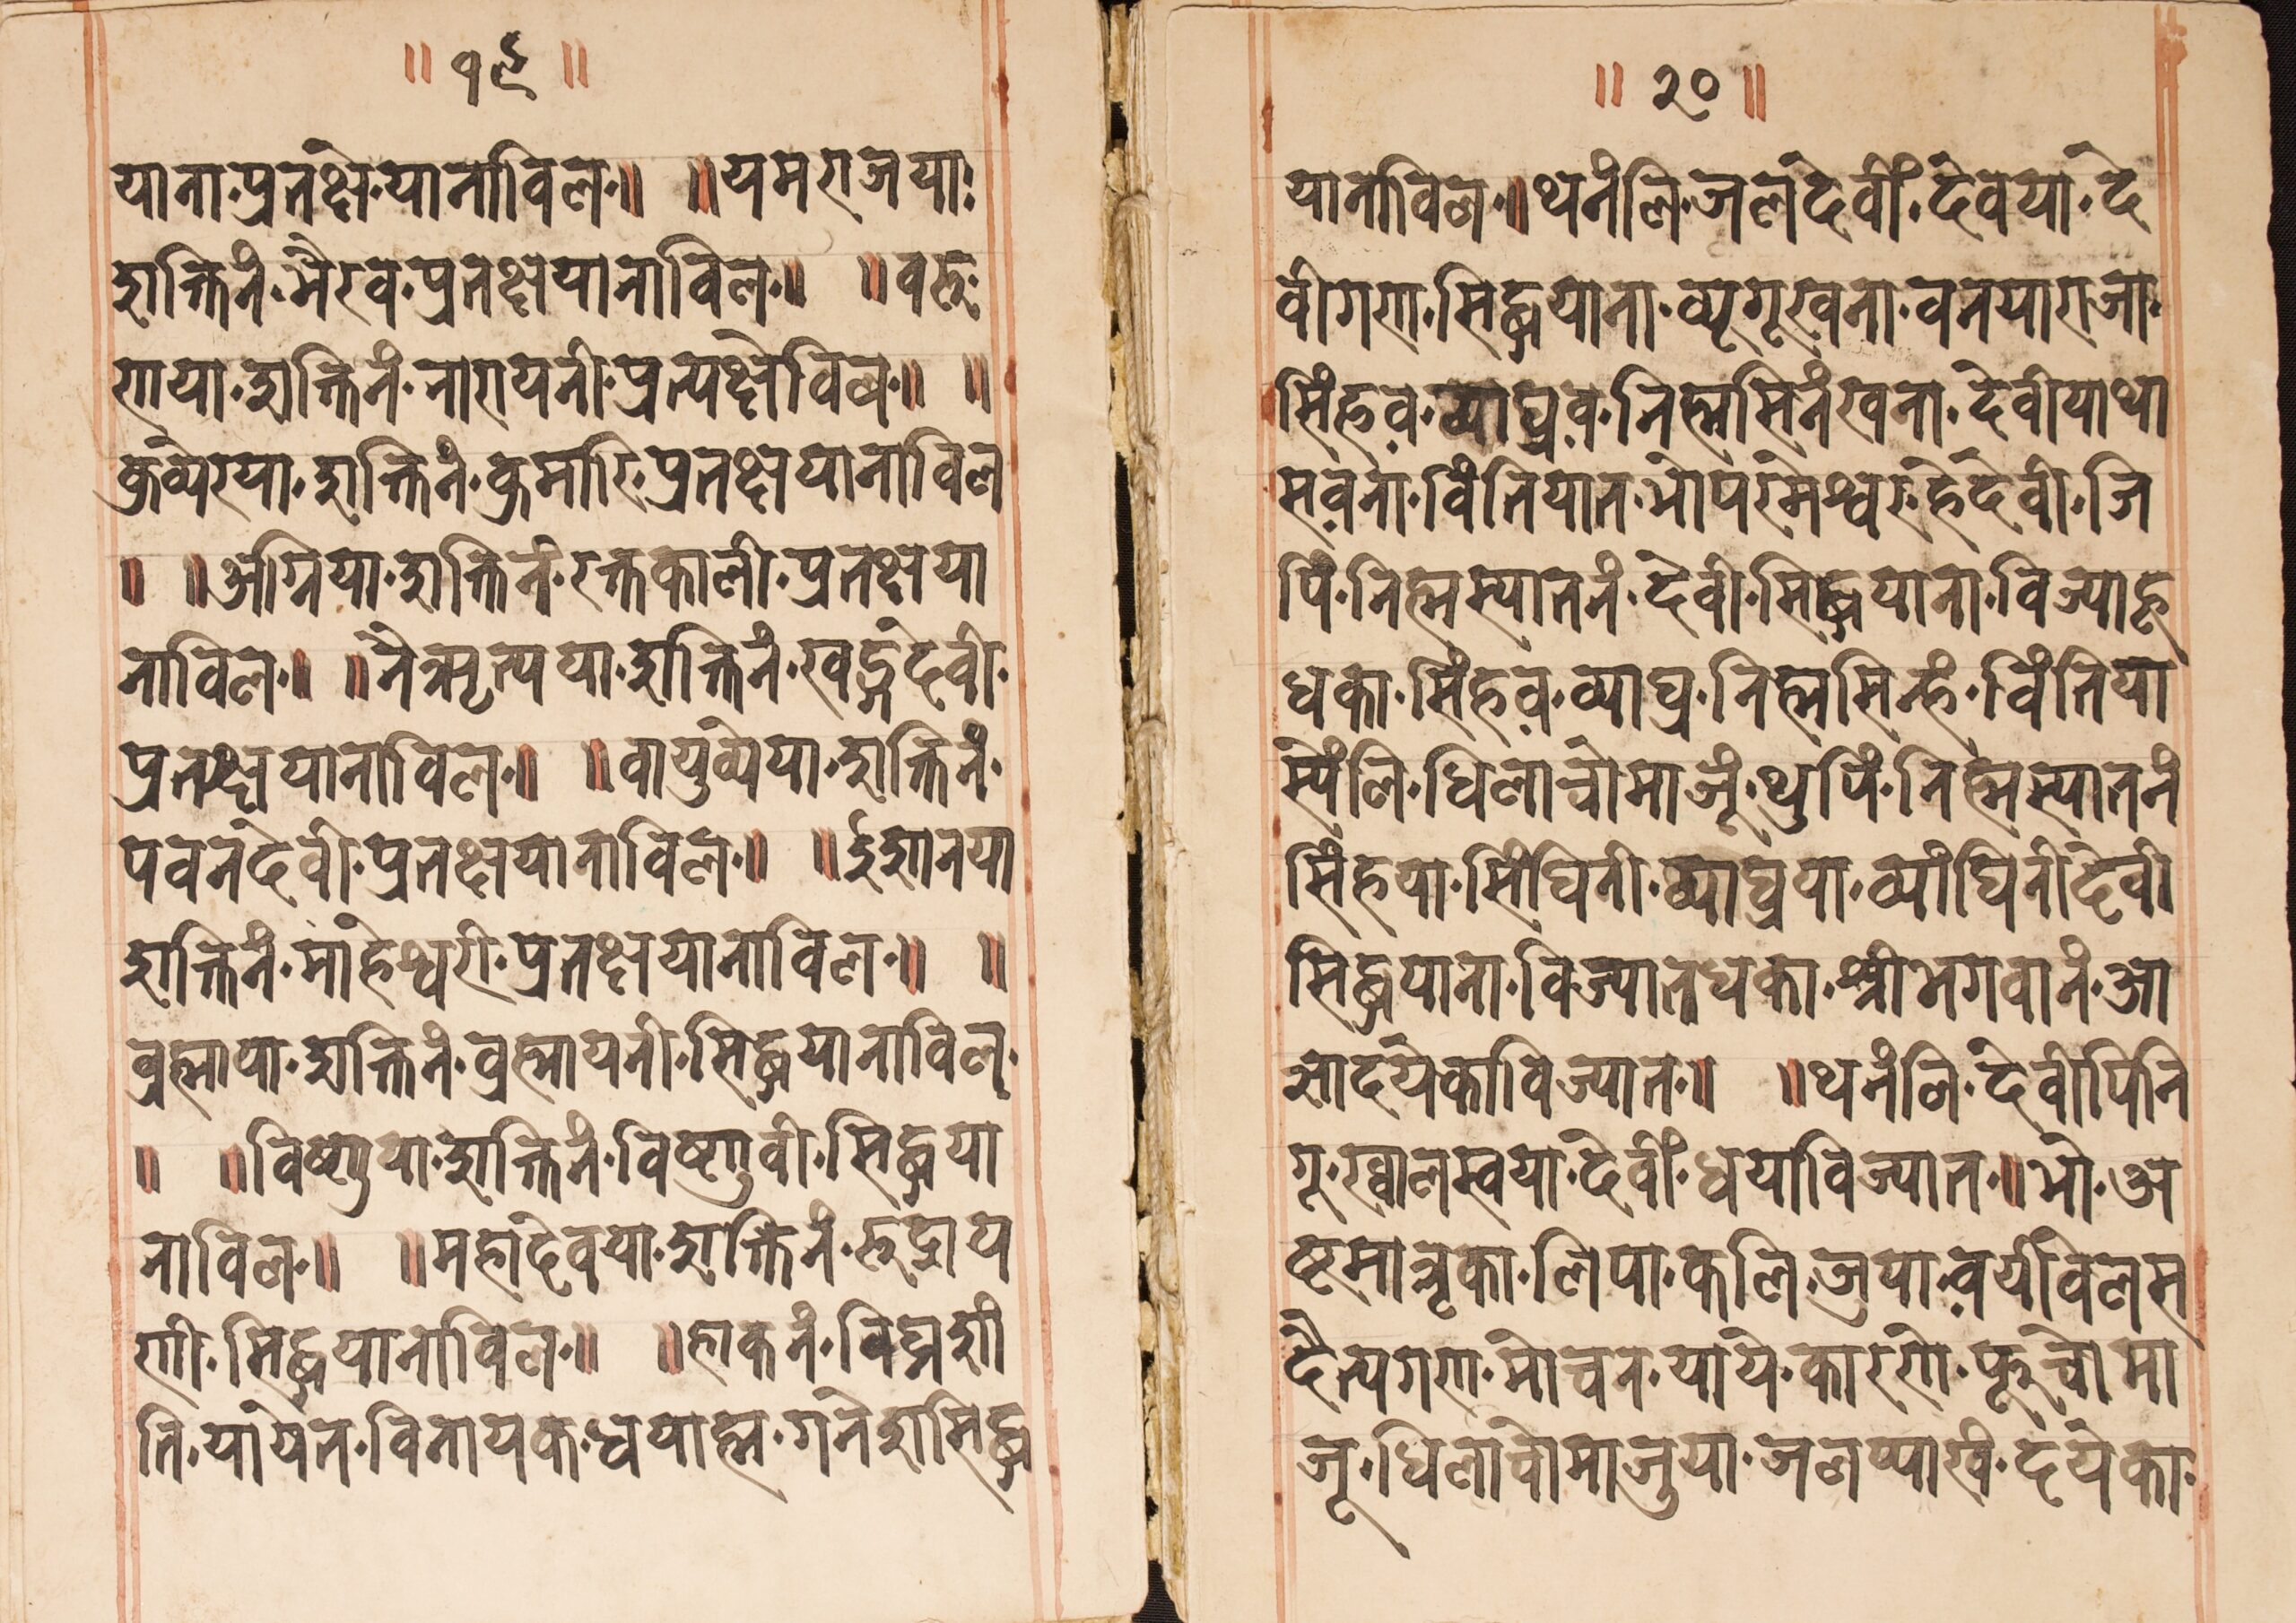 ॥ १९ ॥
याना·प्रतक्षे·यानाविल·॥ ॥यमराजया·
शक्तिनं·भैरव·प्रतक्षयानाविल·॥ ॥वरू·
णया·शक्तिनं·नारायनी·प्रत्यक्षेविल·॥ ॥
कुव्येरया·शक्तिनं·कुमारि·प्रतक्षयानाविल
॥ ॥अग्निया·शक्तिनं·रक्तकाली·प्रतक्षया
नाविल·॥ ॥नैऋत्यया·शक्तिनं·खड्गदेवी·
प्रतक्षयानाविल·॥ ॥वायुव्येया·शक्तिनं·
पवनदेवी·प्रतक्षयानाविल·॥ ॥ईशानया
शक्तिनं·माहेश्वरी·प्रतक्षयानाविल·॥ ॥
ब्रह्माया·शक्तिनं·ब्रह्मायनी·सिद्धयानाविल·
॥ ॥विष्णुया·शक्तिनं·विष्णुवी·सिद्धया
नाविल·॥ ॥महादेवया·शक्तिनं·रूद्राय
णी·सिद्धयानाविल·॥ ॥हाकनं·विघ्नशां
ति·यायेत·विनायक·धयाह्म·गनेशसिद्ध
॥ २० ॥
यानाविल·॥थनंलि·जलदेवीं·देवया·दे
वीगण·सिद्धयाना·व्यूगूखना·वनयाराजा·
सिंहव़·व्याघ्रव़·निह्मसिनंखना·देवीयाथा
सव़ना·विंतियात·भोपरमेश्वर·हेदेवी·जि
पिं·निह्मस्यातनं·देवी·सिद्धयाना·विज्याहू
धका·सिंहव़·व्याघ्र·निह्मसिन्हं·विंतिया
स्येंलि·धिलाचोमाजूं·थुपिं·निह्मस्यातनं
सिंहया·सिंघिनी·व्याघ्रया·व्यांघिनीदेवी
सिद्धयाना·विज्यातधका·श्रीभगवानं·आ
ज्ञादयेकाविज्यात·॥ ॥थनंलि·देवीपिनि
गू·ख्वालस्वया·देवीं·धयाविज्यात·॥भो·अ
ष्टमातृका·लिपा·कलि·जुया·व़यीविलस
दैत्यगण·मोचन·याये·कारणे·फूचोमा
जू·धिलाचोमाजुया·जलप्याखं·दयेका·